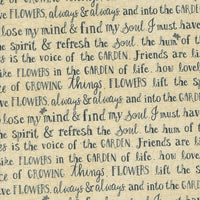 SOUL. I must have FLOWERS, always & always and into the
have FLOWERS, always & always and into the GARDEN
lose my mind & find my Soul. I must have
the spirit & refresh the Soul. the hum of the
is the voice of the GARDEN. Friends are li
like FLOWERS in the GARDEN of life. how lovel
of GROWING Things, FLOWERS lift the sp
have FLOWERS, always & always and into the GARDE
lose my mind & find my Soul. I must have
the spirit & refresh the Soul. the hum of t
is the voice of the GARDEN. Friends are li
like FLOWERS in the GARDEN of life. how love
of GROWING Things, FLOWERS lift the s
ve FLOWERS, always & always and into the GARD
lose my mind & find my Soul. I must have